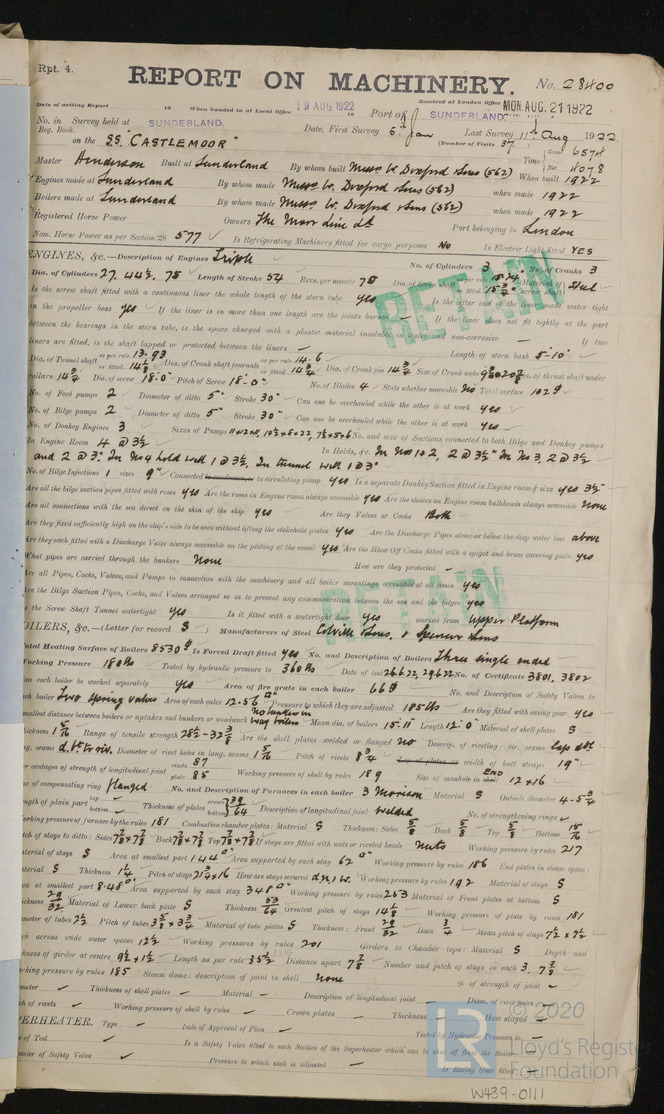 Rpt. 4.
REPORT ON MACHINERY. No. 28400
Date of writing Report 19 When handed in at Local Office 19 AUG 1922 Received at London Office MON. AUG. 21 1922
No. in Survey held at SUNDERLAND Port of SUNDERLAND
Reg. Book. Date, First Survey 5th Jan Last Survey 11th Aug 1922
on the SS "CASTLEMOOR" (Number of Visits 37
Tons Gross 6574
Net 4078
Master Henderson Built at Sunderland By whom built Messrs W. Doxford & Sons (562) When built 1922
Engines made at Sunderland By whom made Messrs W. Doxford & Sons (562) when made 1922
Boilers made at Sunderland By whom made Messrs W. Doxford & Sons (562) when made 1922
Registered Horse Power Owners The Moor Line Ld Port belonging to London
Nom. Horse Power as per Section 28 577 Is Refrigerating Machinery fitted for cargo purposes No Is Electric Light fitted YES
ENGINES, &c.—Description of Engines Triple No. of Cylinders 3 No. of Cranks 3
Dia. of Cylinders 27. 44½. 75 Length of Stroke 54 Revs. per minute 75
Is the screw shaft fitted with a continuous liner the whole length of the stern tube yes Is the after end of the liner made water tight
in the propeller boss yes If the liner is in more than one length are the joints burned — If the liner does not fit tightly at the part
between the bearings in the stern tube, is the space charged with a plastic material insoluble in water and non-corrosive — If two
liners are fitted, is the shaft lapped or protected between the liners — Length of stern bush 5-10"
Dia. of Tunnel shaft as per rule 13.93 Dia. of Crank shaft journals as per rule 14.6 Dia. of Crank pin 14¾ Size of Crank webs Dia. of thrust shaft under
collars 14¾ Dia. of screw 18-0" Pitch of Screw 18-0" No. of Blades 4 State whether moveable No Total surface 102
No. of Feed pumps 2 Diameter of ditto 5" Stroke 30" Can one be overhauled while the other is at work yes
No. of Bilge pumps 2 Diameter of ditto 5" Stroke 30" Can one be overhauled while the other is at work yes
No. of Donkey Engines 3 Sizes of Pumps No. and size of Suctions connected to both Bilge and Donkey pumps
In Engine Room 4 @ 3½ In Holds, &c. In Nos 1 & 2, 2 @ 3½" In No 3, 2 @ 3½
and 2 @ 3". In No 4 hold well 1 @ 3½. In tunnel well 1 @ 3"
No. of Bilge Injections 1 sizes 9" Connected to circulating pump yes Is a separate Donkey Suction fitted in Engine room & size yes 3½"
Are all the bilge suction pipes fitted with roses yes Are the roses in Engine room always accessible yes Are the sluices on Engine room bulkheads always accessible None
Are all connections with the sea direct on the skin of the ship yes Are they Valves or Cocks Both
Are they fixed sufficiently high on the ship's side to be seen without lifting the stokehold plates yes Are the Discharge Pipes above or below the deep water line above
Are they each fitted with a Discharge Valve always accessible on the plating of the vessel yes Are the Blow Off Cocks fitted with a spigot and brass covering plate yes
What pipes are carried through the bunkers None How are they protected —
Are all Pipes, Cocks, Valves, and Pumps in connection with the machinery and all boiler mountings accessible at all times yes
Are the Bilge Suction Pipes, Cocks, and Valves arranged so as to prevent any communication between the sea and the bilges yes
Is the Screw Shaft Tunnel watertight yes Is it fitted with a watertight door yes worked from Upper Platform
BOILERS, &c.—(Letter for record S) Manufacturers of Steel Colville & Sons, & Spencer & Sons
Total Heating Surface of Boilers 8530 Is Forced Draft fitted yes No. and Description of Boilers Three single ended
Working Pressure 180 lbs Tested by hydraulic pressure to 360 lbs Date of test 26.6.22, 29.6.22 No. of Certificate 3801, 3802
each boiler be worked separately yes Area of fire grate in each boiler 66 No. and Description of Safety Valves to
each boiler Two spring valves Area of each valve 12.56 Pressure to which they are adjusted 185 lbs Are they fitted with easing gear yes
smallest distance between boilers or uptakes and bunkers or woodwork Mean dia. of boilers 15-11 Length 12-0" Material of shell plates S
Thickness Range of tensile strength 28½-32 Are the shell plates welded or flanged No Descrip. of riveting: cir. seams lap dbl
long. seams Diameter of rivet holes in long. seams Pitch of rivets width of butt straps 19"
Per centages of strength of longitudinal joint rivets 87 plate 85 Working pressure of shell by rules 189 Size of manhole in END 12 x 16
Size of compensating ring flanged No. and Description of Furnaces in each boiler 3 Morison Material S Outside diameter 4-5¾
Length of plain part Thickness of plates Description of longitudinal joint welded No. of strengthening rings
Working pressure of furnace by the rules 181 Combustion chamber plates: Material S Thickness: Sides ⅝ Back ⅝ Top ⅝ Bottom
Pitch of stays to ditto: Sides Back Top If stays are fitted with nuts or riveted heads Nuts Working pressure by rules 217
Material of stays S Area at smallest part 1.44 Area supported by each stay 62 Working pressure by rules 186 End plates in steam space:
Material S Thickness Pitch of stays How are stays secured Working pressure by rules 192 Material of stays S
Area at smallest part 8.48 Area supported by each stay 346 Working pressure by rules 253 Material of Front plates at bottom S
Thickness Material of Lower back plate S Thickness Greatest pitch of stays Working pressure of plate by rules 181
Diameter of tubes 2½ Pitch of tubes Material of tube plates S Thickness: Front Back Mean pitch of stays 7½ x 7½
Pitch across wide water spaces 12½ Working pressures by rules 201 Girders to Chamber tops: Material S Depth and
thickness of girder at centre 9½ x 1½ Length as per rule 35½ Distance apart Number and pitch of stays in each 3.
Working pressure by rules 185 Steam dome: description of joint to shell None % of strength of joint
Diameter Thickness of shell plates Material Description of longitudinal joint Diam. of rivet holes
Pitch of rivets Working pressure of shell by rules Crown plates Thickness How stayed
SUPERHEATER. Type Date of Approval of Plan Tested by Hydraulic Pressure to
Date of Test Is a Safety Valve fitted to each Section of the Superheater which can be shut off from the Boiler
Diameter of Safety Valve Pressure to which each is adjusted Is Easing Gear fitted
RETAIN
RETAIN
LR © 2020
Lloyd's Register
Foundation
W439-0111